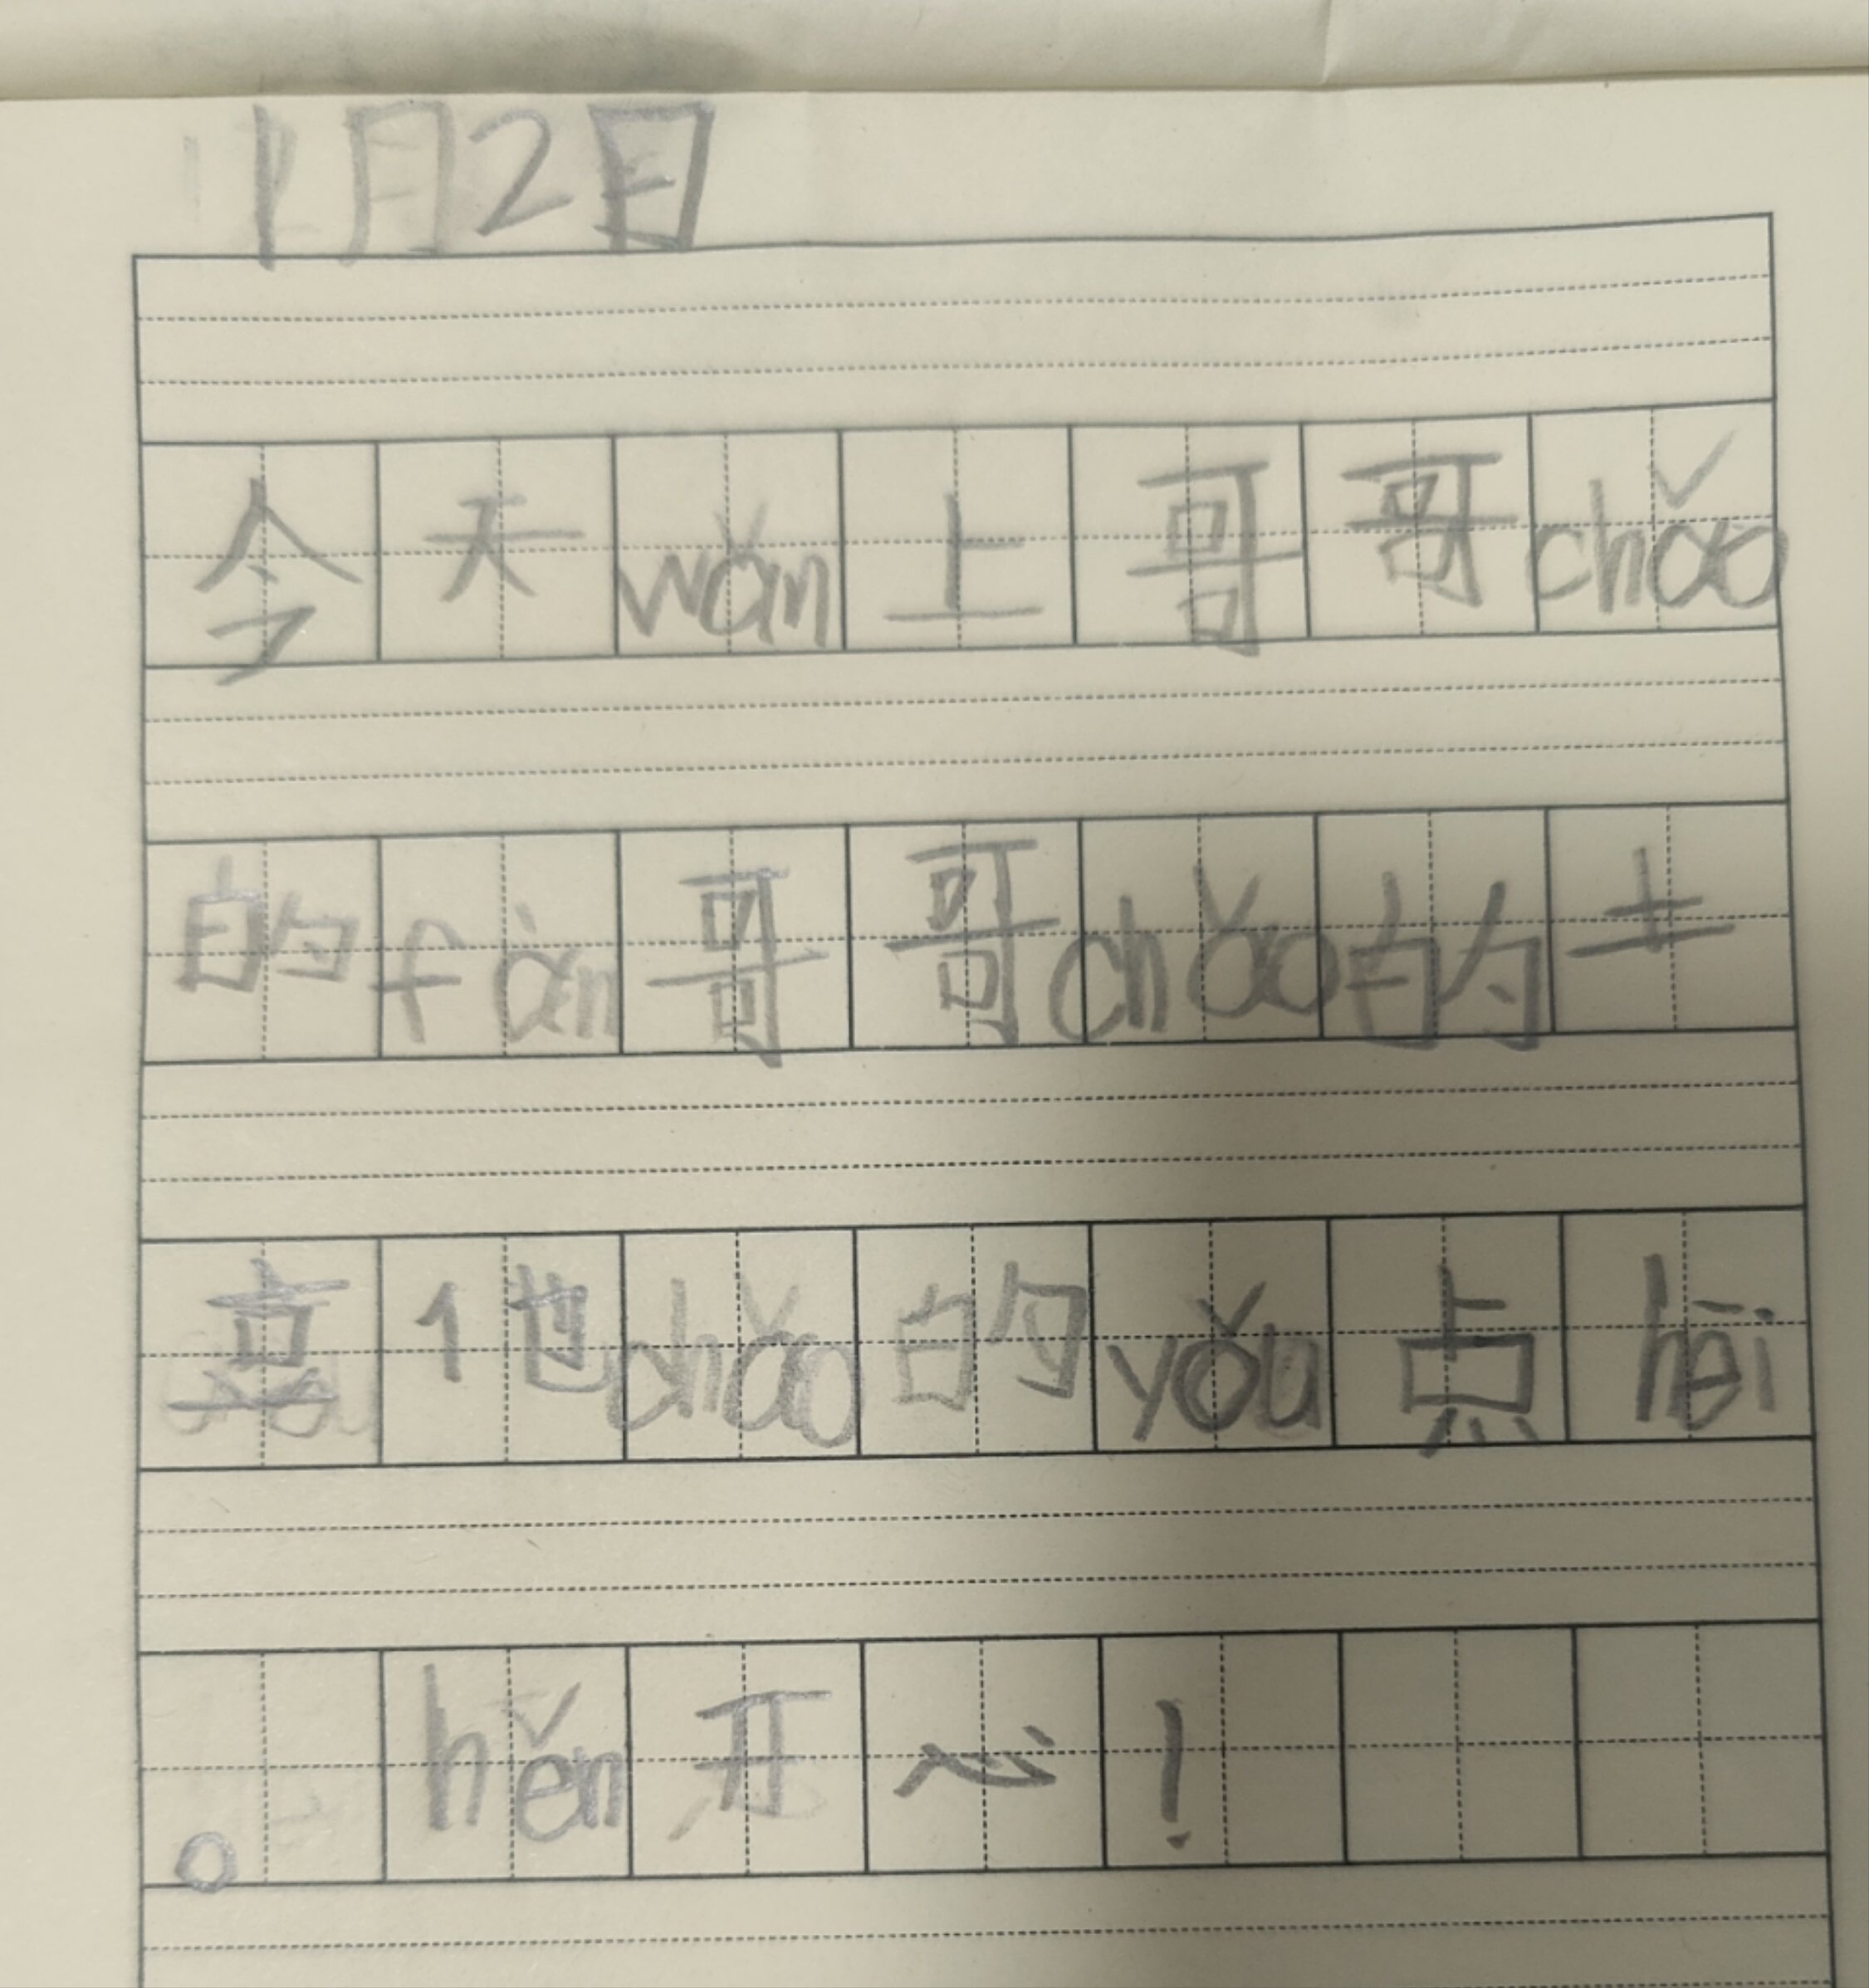 1月2日
今天wǎn上哥哥chǎo
的fàn哥哥chǎo的土
他chǎo的yǒu点hēi
。hěn开心!